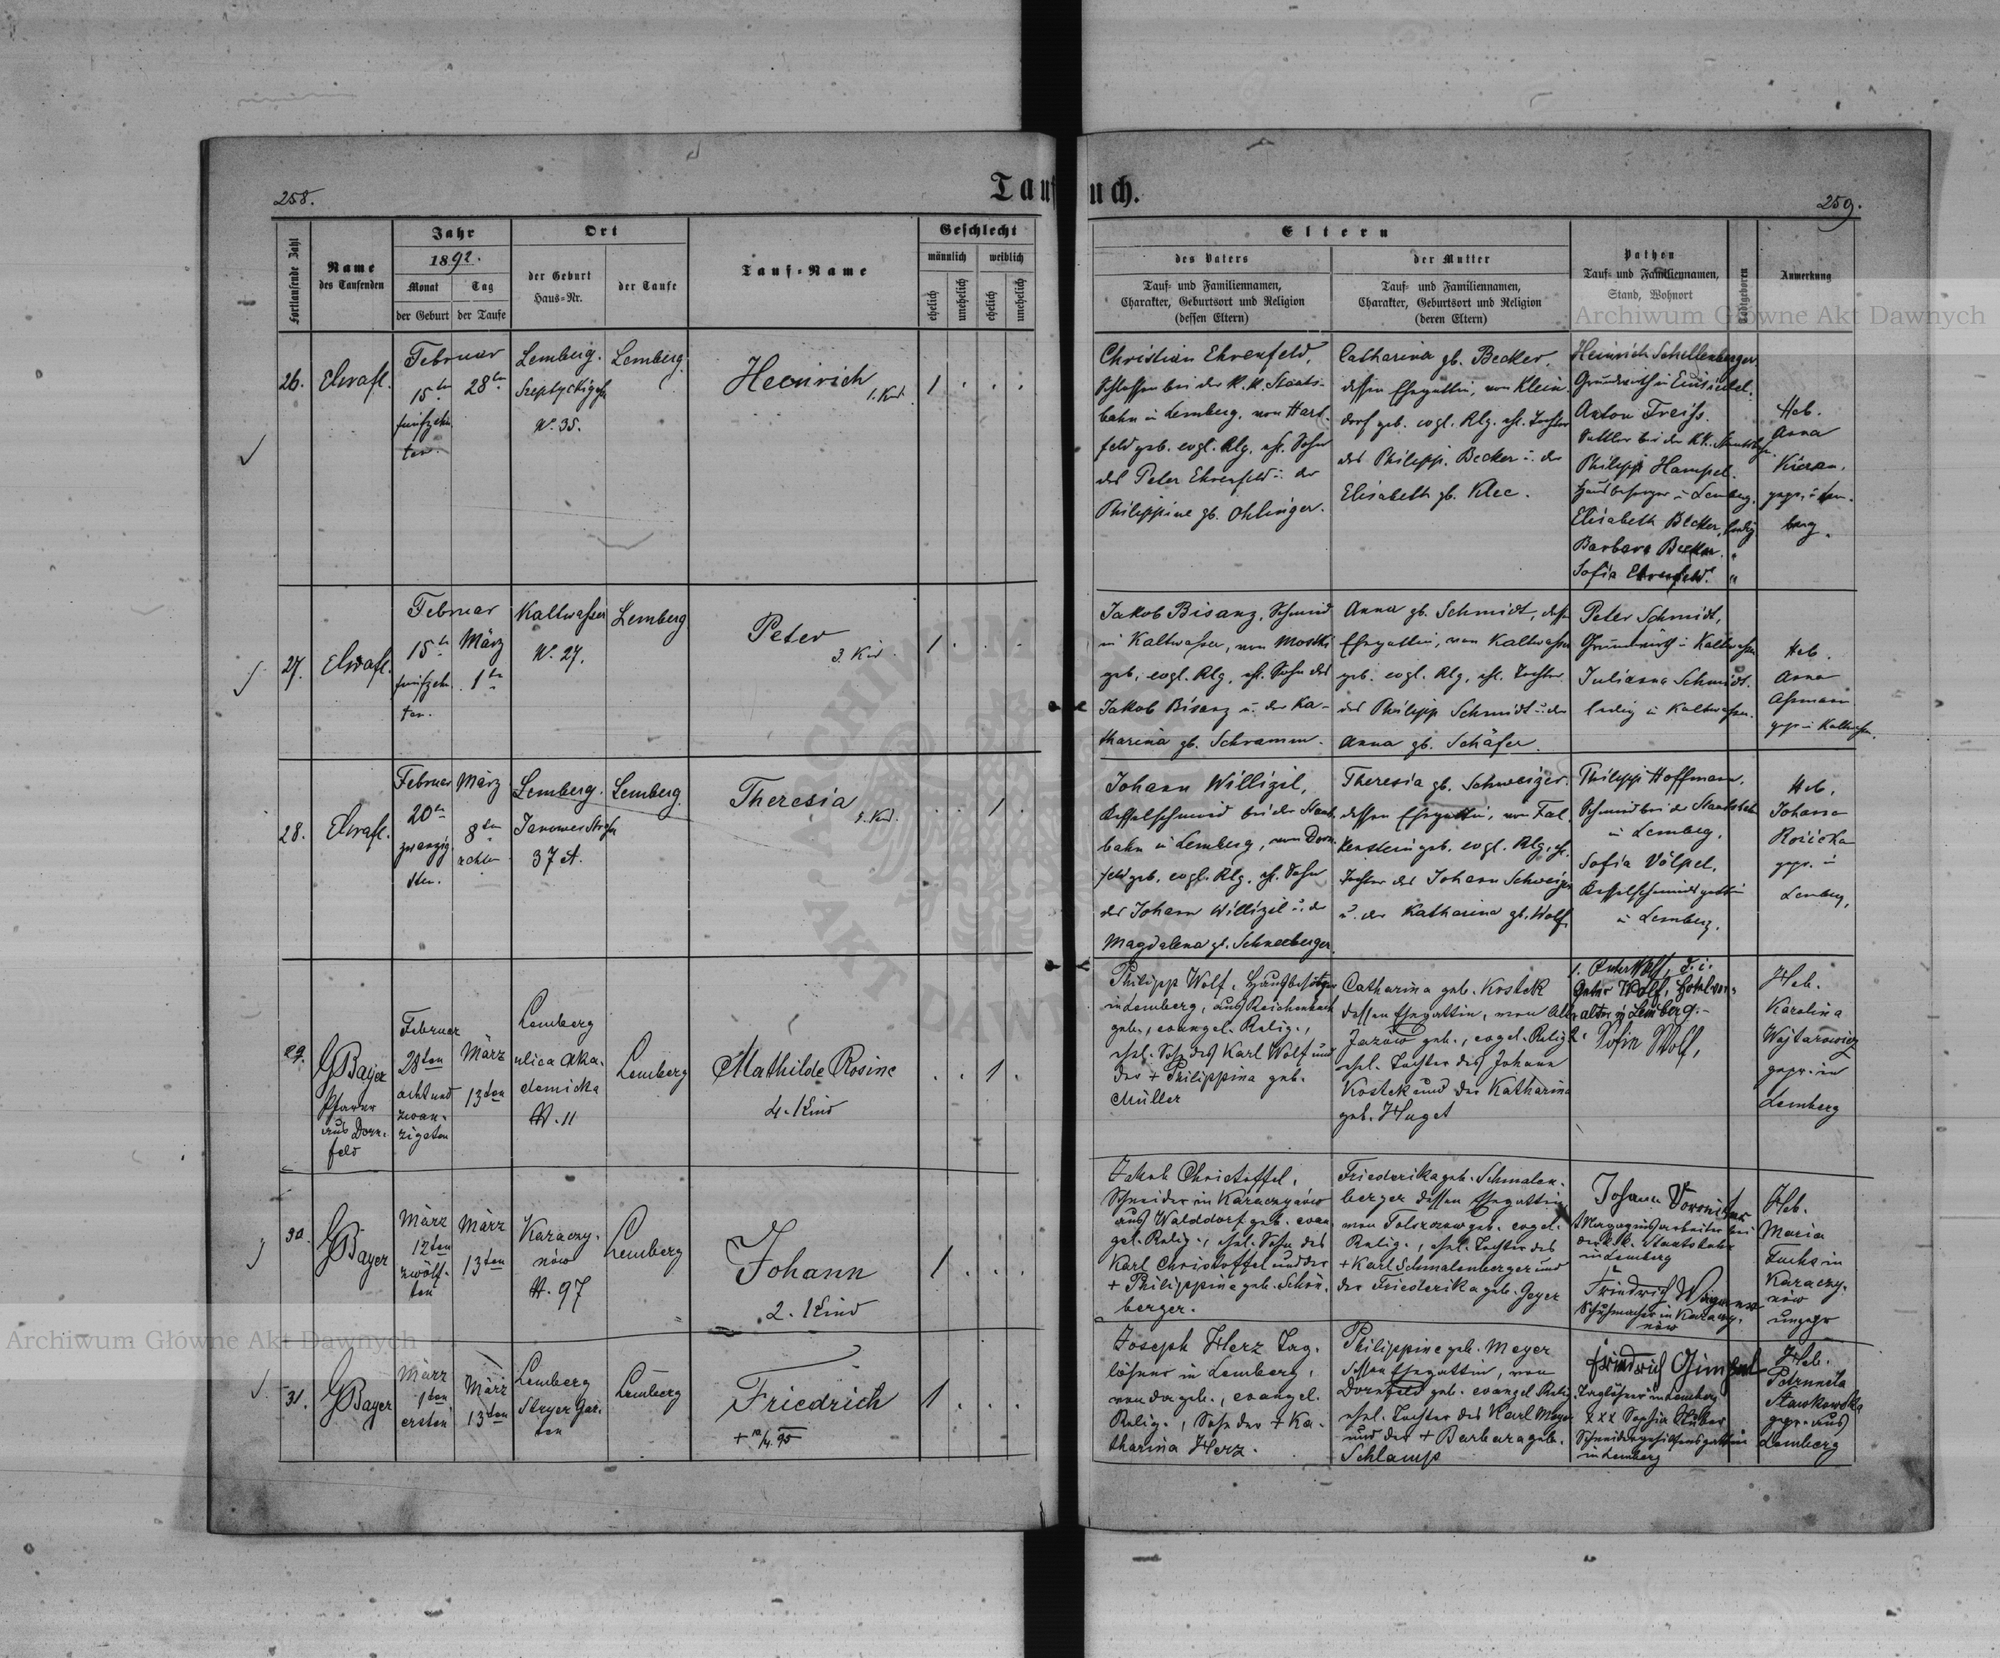 258.
Taufbuch.
259.
Fortlaufende Zahl
Name
des Taufenden
Jahr
1892.
Monat
Tag
der Geburt
der Taufe
Ort
der Geburt
Haus=Nr.
der Taufe
Tauf=Name
Geschlecht
männlich
weiblich
ehelich
unehelich
ehelich
unehelich
Eltern
des Vaters
Tauf= und Familiennamen,
Charakter, Geburtsort und Religion
(dessen Eltern)
der Mutter
Tauf= und Familiennamen,
Charakter, Geburtsort und Religion
(deren Eltern)
Pathen
Tauf= und Familiennamen,
Stand, Wohnort
Anmerkung
Archiwum Główne Akt Dawnych
26.
Februar
15ten
fünfzehn
ten.
28ten
Lemberg.
N. 35.
Lemberg.
Heinrich
1. Kind.
1 . . .
Christian Ehrenfeld,
Schlosser bei der K. K. Staats-
bahn in Lemberg, von Hart-
feld geb. evgl. Rlg. ehl. Sohn
des Peter Ehrenfeld u. der
Philippine gb. Ohlinger.
Catharina gb. Becker,
dessen Ehegattin, von Klein
dorf geb. evgl. Rlg. ehl. Tochter
des Philipp Becker u. der
Elisabeth gb. Klee.
Heinrich Schellenberger
Grundwirth in Einsiedel.
Anton Treiss.
Sattler bei der KK. Staatsbahn.
Philipp Hampel.
Hausbesorger in Lemberg.
Elisabeth Becker, ledig
Barbara Becker. "
Sofia Ehrenfeld. "
Heb.
Anna
gepr. in Lem-
berg.
27.
Februar
15ten
fünfzehn
ten.
März
1ten
Kaltwasser
N. 27.
Lemberg
Peter
3. Kind.
1 . . .
Jakob Bisanz, Schmied
in Kaltwasser, von Mostki
geb. evgl. Rlg. ehl. Sohn des
Jakob Bisanz u. der Ka-
tharina gb. Schramm.
Anna gb. Schmidt, dessen
Ehegattin, von Kaltwasser
geb. evgl. Rlg. ehl. Tochter
des Philipp Schmidt u. der
Anna gb. Schäfer.
Peter Schmidt,
Grundwirth in Kaltwasser
Julianna Schmidt.
ledig in Kaltwasser.
Heb.
Anna
Assmann
gepr. in Kaltwasser.
28.
Februar
20ten
zwanzig
sten.
März
8ten
achten
Lemberg.
Janower Strasse
37 A.
Lemberg.
Theresia
1. Kind.
. . 1 .
Johann Willigil,
Kesselschmied bei der Staats-
bahn in Lemberg, von Dorn-
feld geb. evgl. Rlg. ehl. Sohn
des Johann Willigil u. der
Magdalena gb. Schneeberger.
Theresia gb. Schweizer
dessen Ehegattin, von Fal-
kenstein geb. evgl. Rlg. ehl.
Tochter des Johann Schweizer
u. der Katharina gb. Wolf.
Philipp Hoffmann,
Schmied bei der Staatsbahn
in Lemberg.
Sofia Völpel,
Kesselschmiedsgattin
in Lemberg.
Heb.
Johanna
gepr. in
Lemberg.
29.
GBayer
Pfarrer
aus Dorn-
feld
Februar
28ten
acht und
zwan-
zigsten
März
13ten
Lemberg
ulica Aka-
demicka
N. 11
Lemberg
Mathilde Rosine
4. Kind
. . 1 .
Philipp Wolf, Hausbesitzer
in Lemberg, aus Reichenbach
geb., evangel. Relig.,
ehel. Sohn des Karl Wolf und
der + Philippina geb.
Müller
Catharina geb. Kostek
dessen Ehegattin, von Alt-
Jazow geb., evgel. Relig.
ehel. Tochter des Johann
Kostek und der Katharina
geb. Huget
Peter Wolf, Hotelver-
walter in Lemberg.-
2. Sofia Wolf,
Heb.
Karolina
Wojtarowicz
gepr. in
Lemberg
30.
GBayer
März
12ten
zwölf-
ten
März
13ten
Karaczy-
nów
N. 97
Lemberg
Johann
2. Kind
1 . . .
Jakob Christoffel,
Schneider in Karaczynów
aus Walddorf geb. evan
gel. Relig., ehel. Sohn des
Karl Christoffel und der
+ Philippine geb. Schön-
berger.
Friederika geb. Schmalen-
berger dessen Ehegattin
geb. evgel.
Relig., ehel. Tochter des
+ Karl Schmalenberger und
der Friederika geb. Geyer
Johann
Magazinsarbeiter bei
der k.k. Staatsbahn
in Lemberg
Friedrich
Schuhmacher in Karaczy-
nów
Heb.
Maria
Fuchs in
Karaczy-
nów
ungepr
31.
GBayer
März
1ten
ersten
März
13ten
Lemberg
Stryer Gar-
ten
Lemberg
Friedrich
1 . . .
Joseph Herz Tag-
löhner in Lemberg,
von da geb., evangel.
Relig., Sohn der + Ka-
tharina Herz.
Philippine geb. Meyer
dessen Ehegattin, von
Dornfeld geb. evangel Relig.
ehel. Tochter des Karl Meyer
und der + Barbara geb.
Schlamp
Friedrich Gimpel
Taglöhner in Lemberg
xxx Sophia Huber
Schneidergehilfensgattin
in Lemberg
Heb.
Petronela
Stankowska
gepr. aus
Lemberg
Archiwum Główne Akt Dawnych